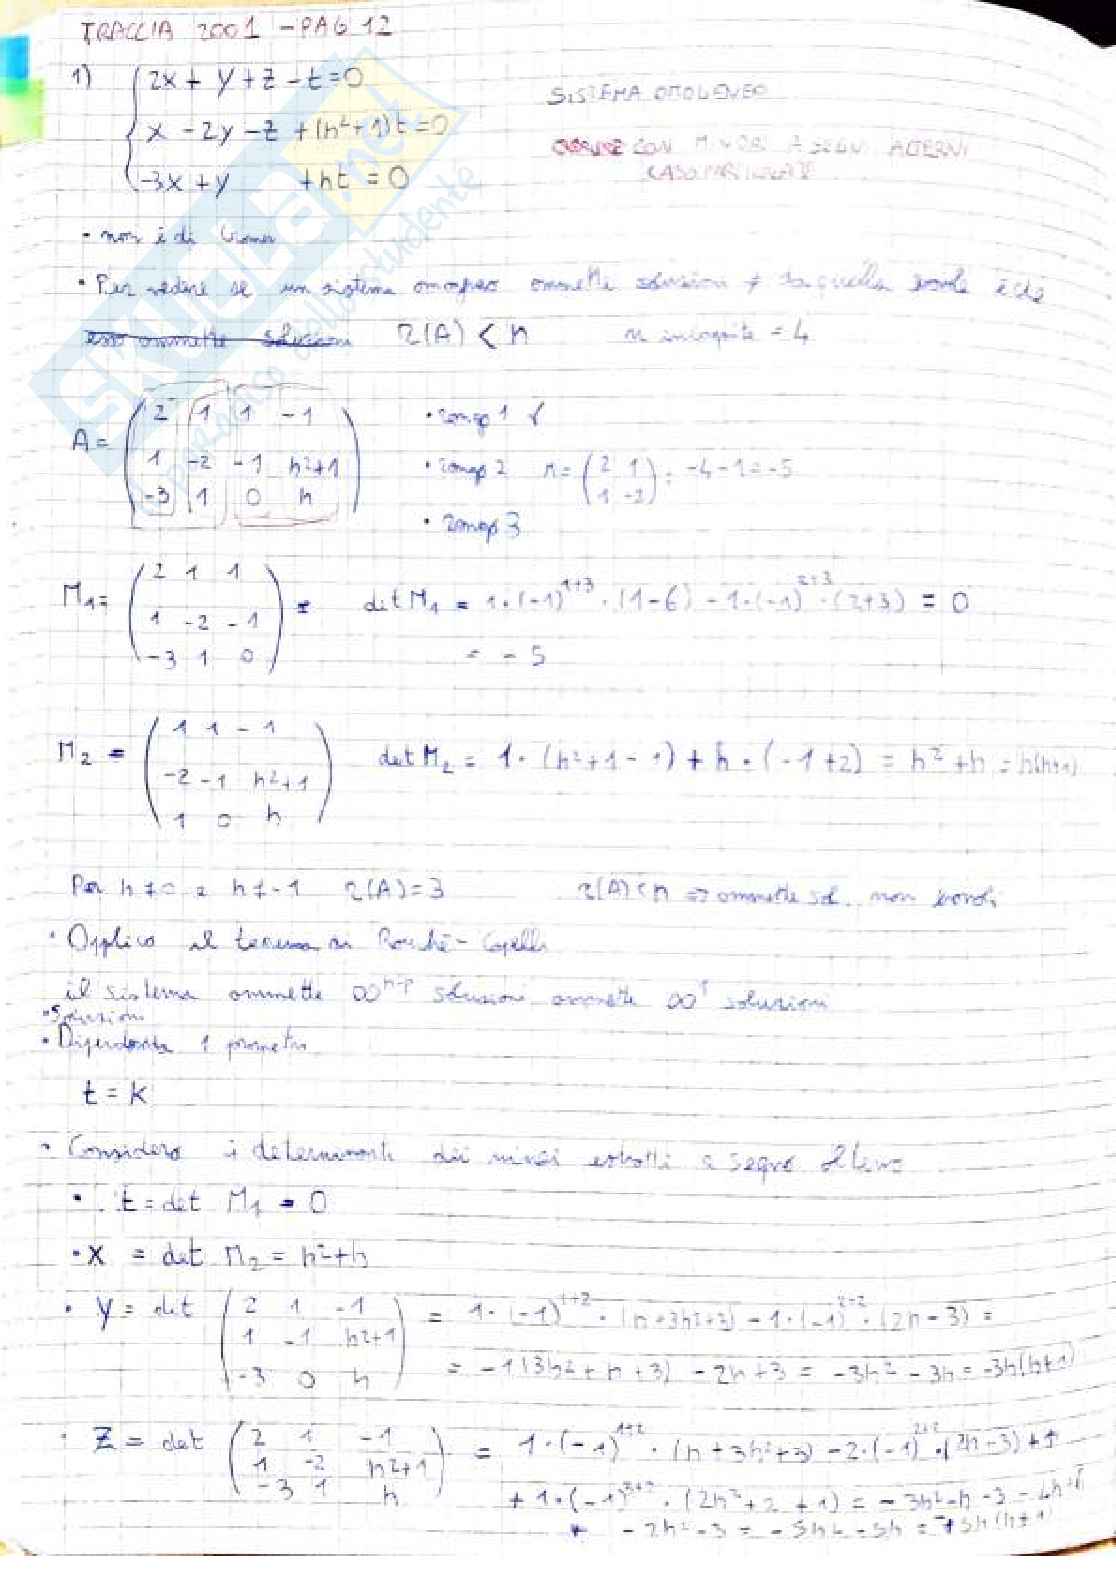 TRACCIA 2001 - PAG 12
1) { 2x + y + z - t = 0
SISTEMA OMOGENEO
x - 2y - z + (h²+1)t = 0
CON MINORI A SEGNI ALTERNI
-3x + y + ht = 0
CASO PARTICOLARE
• non è di Cramer
• Per vedere se un sistema omogeneo ammette soluzioni ≠ da quella banale è che
esso ammette soluzioni r(A) < n n incognite = 4
A = ( 2 1 1 -1
1 -2 -1 h²+1
-3 1 0 h )
• rango 1 √
• rango 2 M = ( 2 1
1 -2 ) = -4-1 = -5
• rango 3
M₁ = ( 2 1 1
1 -2 -1
-3 1 0 ) = det M₁ = 1·(-1)¹⁺³·(1-6) - 1·(-1)²⁺³·(2+3) = 0
= -5
M₂ = ( 1 1 -1
-2 -1 h²+1
1 0 h ) det M₂ = 1·(h²+1-1) + h·(-1+2) = h²+h = h(h+1)
Per h≠0 e h≠-1 r(A)=3 r(A)<n => ammette sol. non banali
• Applico il teorema di Rouché-Capelli
il sistema ammette ∞ⁿ⁻ᵖ soluzioni ammette ∞¹ soluzioni
• Soluzioni
• Dipendenza 1 parametro
t = k
• Considero i determinanti dei minori estratti a segno alterno
• t = det M₁ = 0
• x = det M₂ = h²+h
• y = det ( 2 1 -1
1 -1 h²+1
-3 0 h ) = 1·(-1)¹⁺²·(h+3h²+3) - 1·(-1)²⁺²·(2h-3) =
= -1(3h²+h+3) - 2h+3 = -3h²-3h = -3h(h+1)
• z = det ( 2 1 -1
1 -2 h²+1
-3 1 h ) = 1·(-1)¹⁺²·(h+3h²+3) - 2·(-1)²⁺²·(2h-3) +
+ 1·(-1)³⁺²·(2h²+2+1) = -3h²-h-3-4h+
-2h²-3 = -5h²-5h = -5h(h+1)
skuola.net